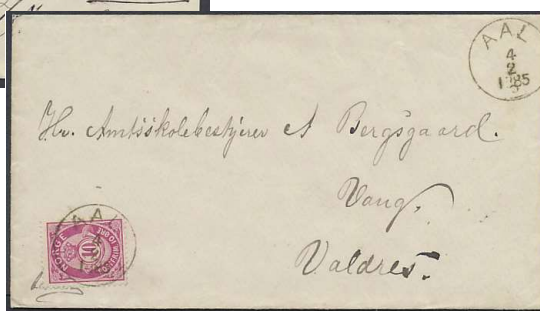 AAL
4
2
1885
Hr. Amtsskolebestyrer A Bergsgaard.
Vang.
Valdres.
AAL
NORGE
10